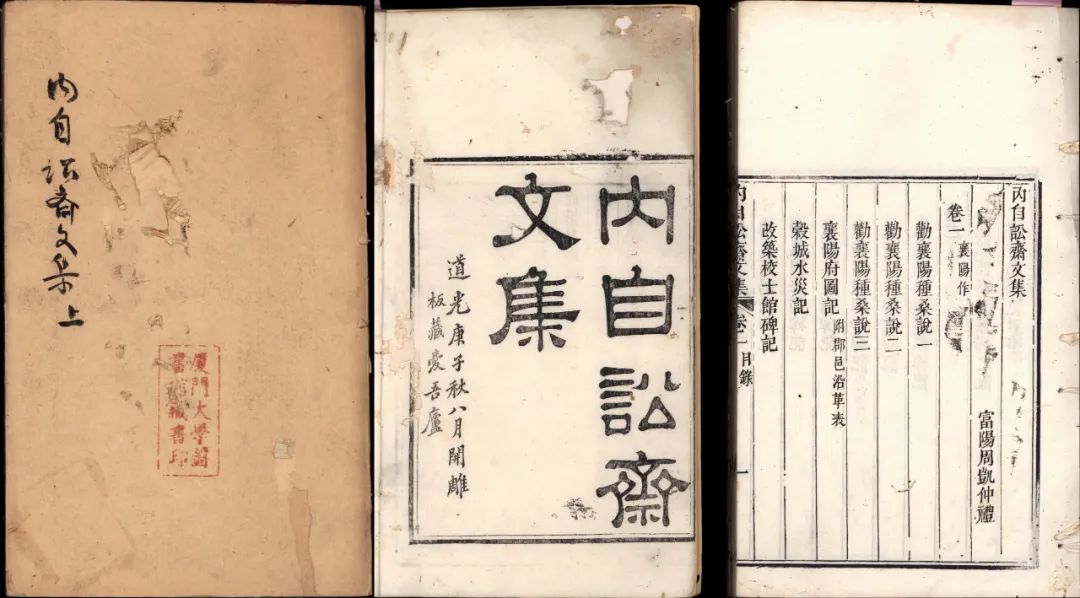 內自訟齋文集上
厦門大學圖
書館藏書印
內自訟齋
文集
道光庚子秋八月開雕
板藏愛吾廬
內自訟齋文集
富陽周凱仲禮
卷一 襄陽作
勸襄陽種桑說一
勸襄陽種桑說二
勸襄陽種桑說三
襄陽府圖記 附郡邑沿革表
穀城水災記
改築校士館碑記
內自訟齋文集 卷一 目錄 一